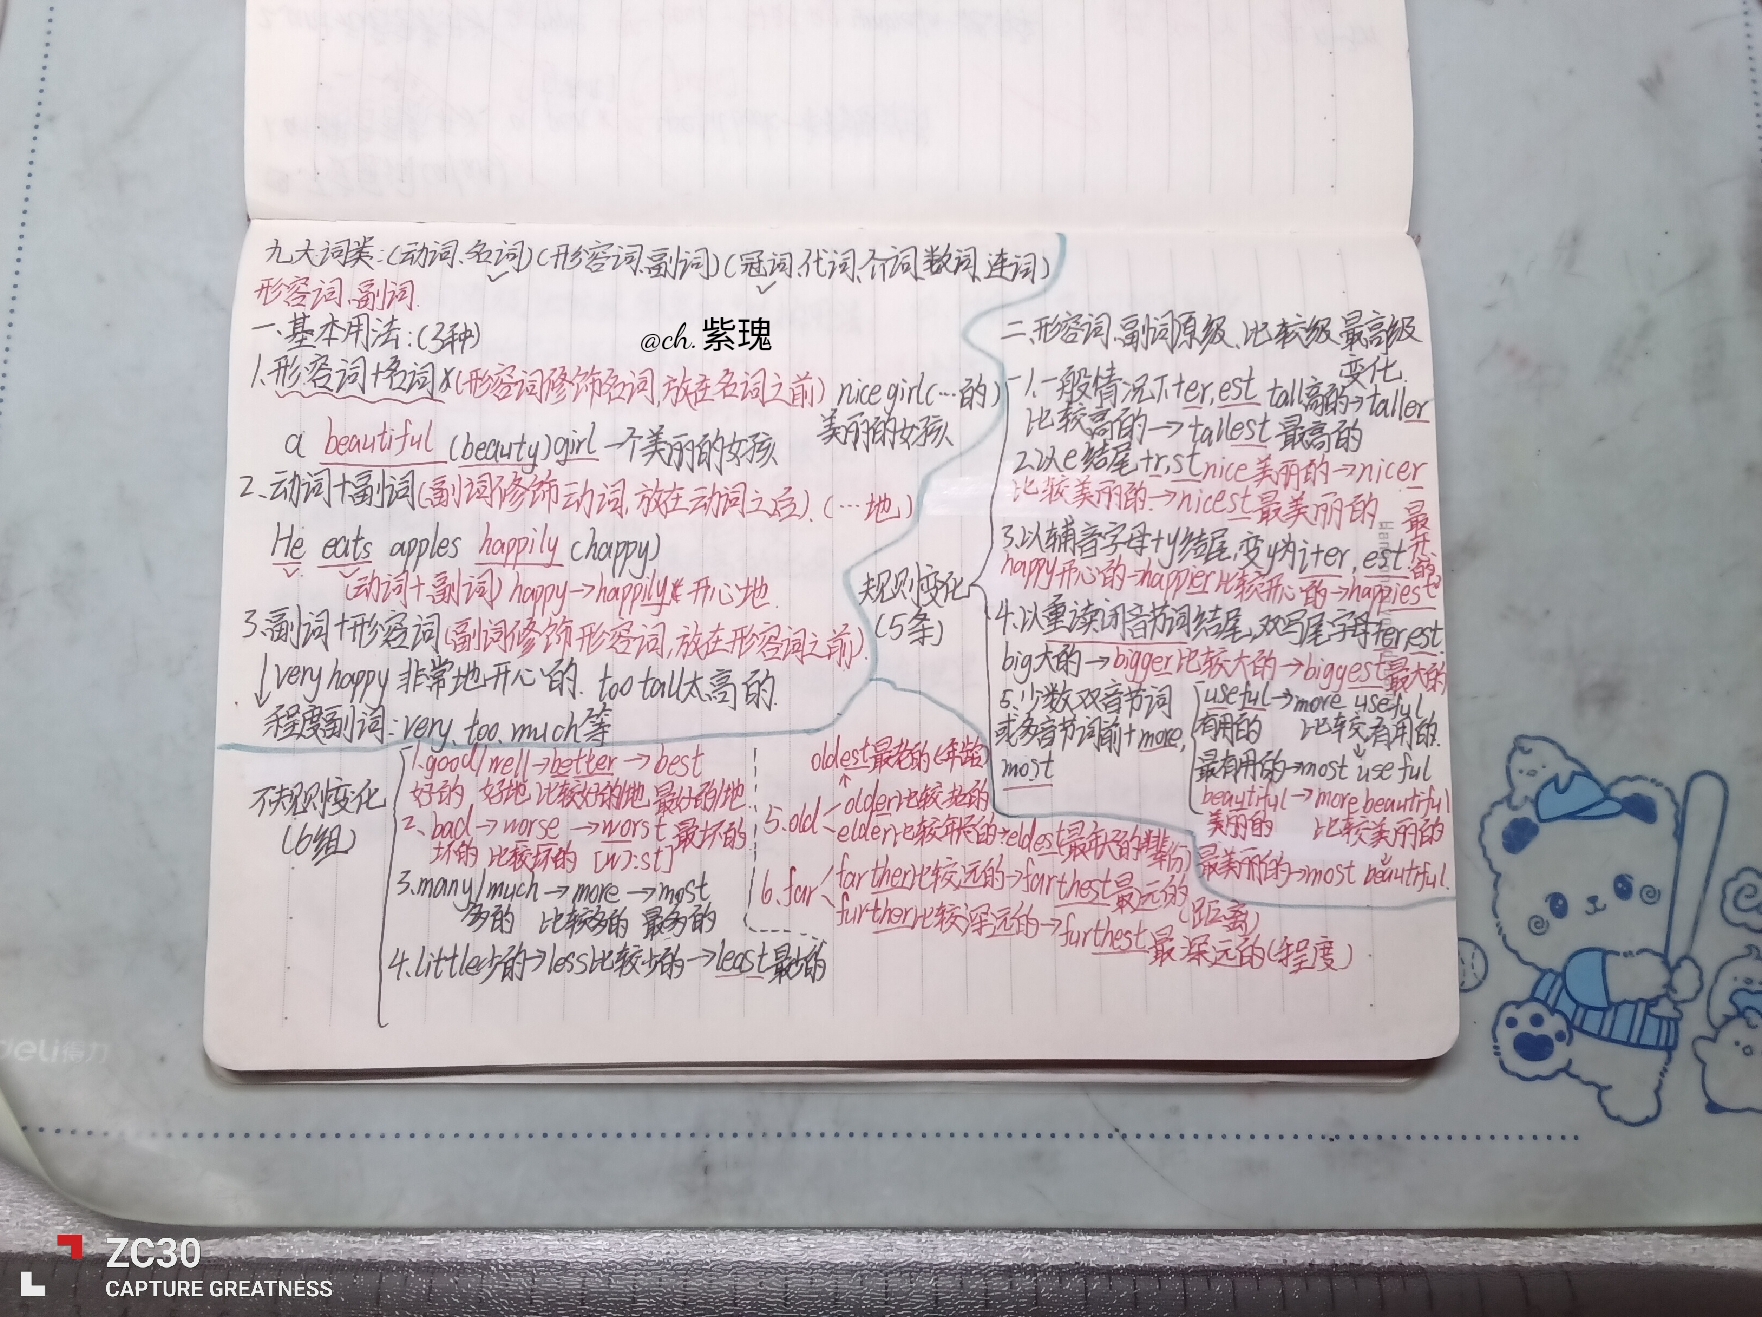 九大词类:(动词、名词)(形容词、副词)(冠词、代词、介词、数词、连词)
形容词、副词.
一、基本用法:(3种)
@ch.紫瑰
1.形容词+名词*(形容词修饰名词,放在名词之前) nice girl(…的)
美丽的女孩
a beautiful (beauty) girl 一个美丽的女孩
2、动词+副词(副词修饰动词,放在动词之后).(…地)
He eats apples happily (happy)
(动词+副词) happy→happily* 开心地.
3.副词+形容词(副词修饰形容词,放在形容词之前).
↓very happy 非常地开心的. too tall太高的.
程度副词:very、too、much等
二、形容词、副词原级、比较级、最高级
变化
规则变化
(5条)
1.一般情况下+er,est tall高的→taller
比较高的→tallest 最高的
2.以e结尾+r,st nice美丽的→nicer
比较美丽的→nicest最美丽的
3.以辅音字母+y结尾,变y为i+er,est.
happy开心的→happier比较开心的→happiest
最开心的
4.以重读闭音节词结尾,双写尾字母+er,est.
big大的→bigger比较大的→biggest最大的
5.少数双音节词
或多音节词前+more,
most
useful→more useful
有用的 比较有用的.
最有用的→most useful
beautiful→more beautiful
美丽的 比较美丽的
最美丽的→most beautiful.
不规则变化
(6组)
1.good/well→better→best
好的 好地 比较好的/地 最好的/地
2、bad→worse→worst 最坏的
坏的 比较坏的 [wɜ:st]
3.many/much→more→most
多的 比较多的 最多的
4.little少的→less比较少的→least最少的
oldest最老的(年龄)
↑
5.old older比较老的
elder比较年长的→eldest最年长的(辈份)
6.far farther比较远的→farthest最远的
(距离)
further比较深远的→furthest最深远的(程度)
deli得力
ZC30
CAPTURE GREATNESS